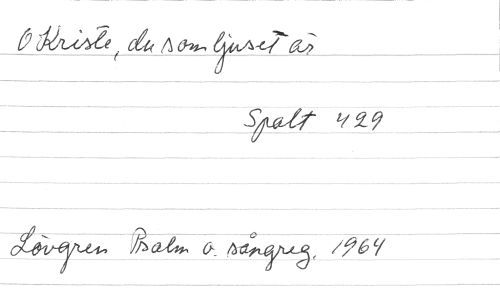 O Kriste, du som ljuset är
Spalt 429
Lövgren Psalm o. sångreg. 1964